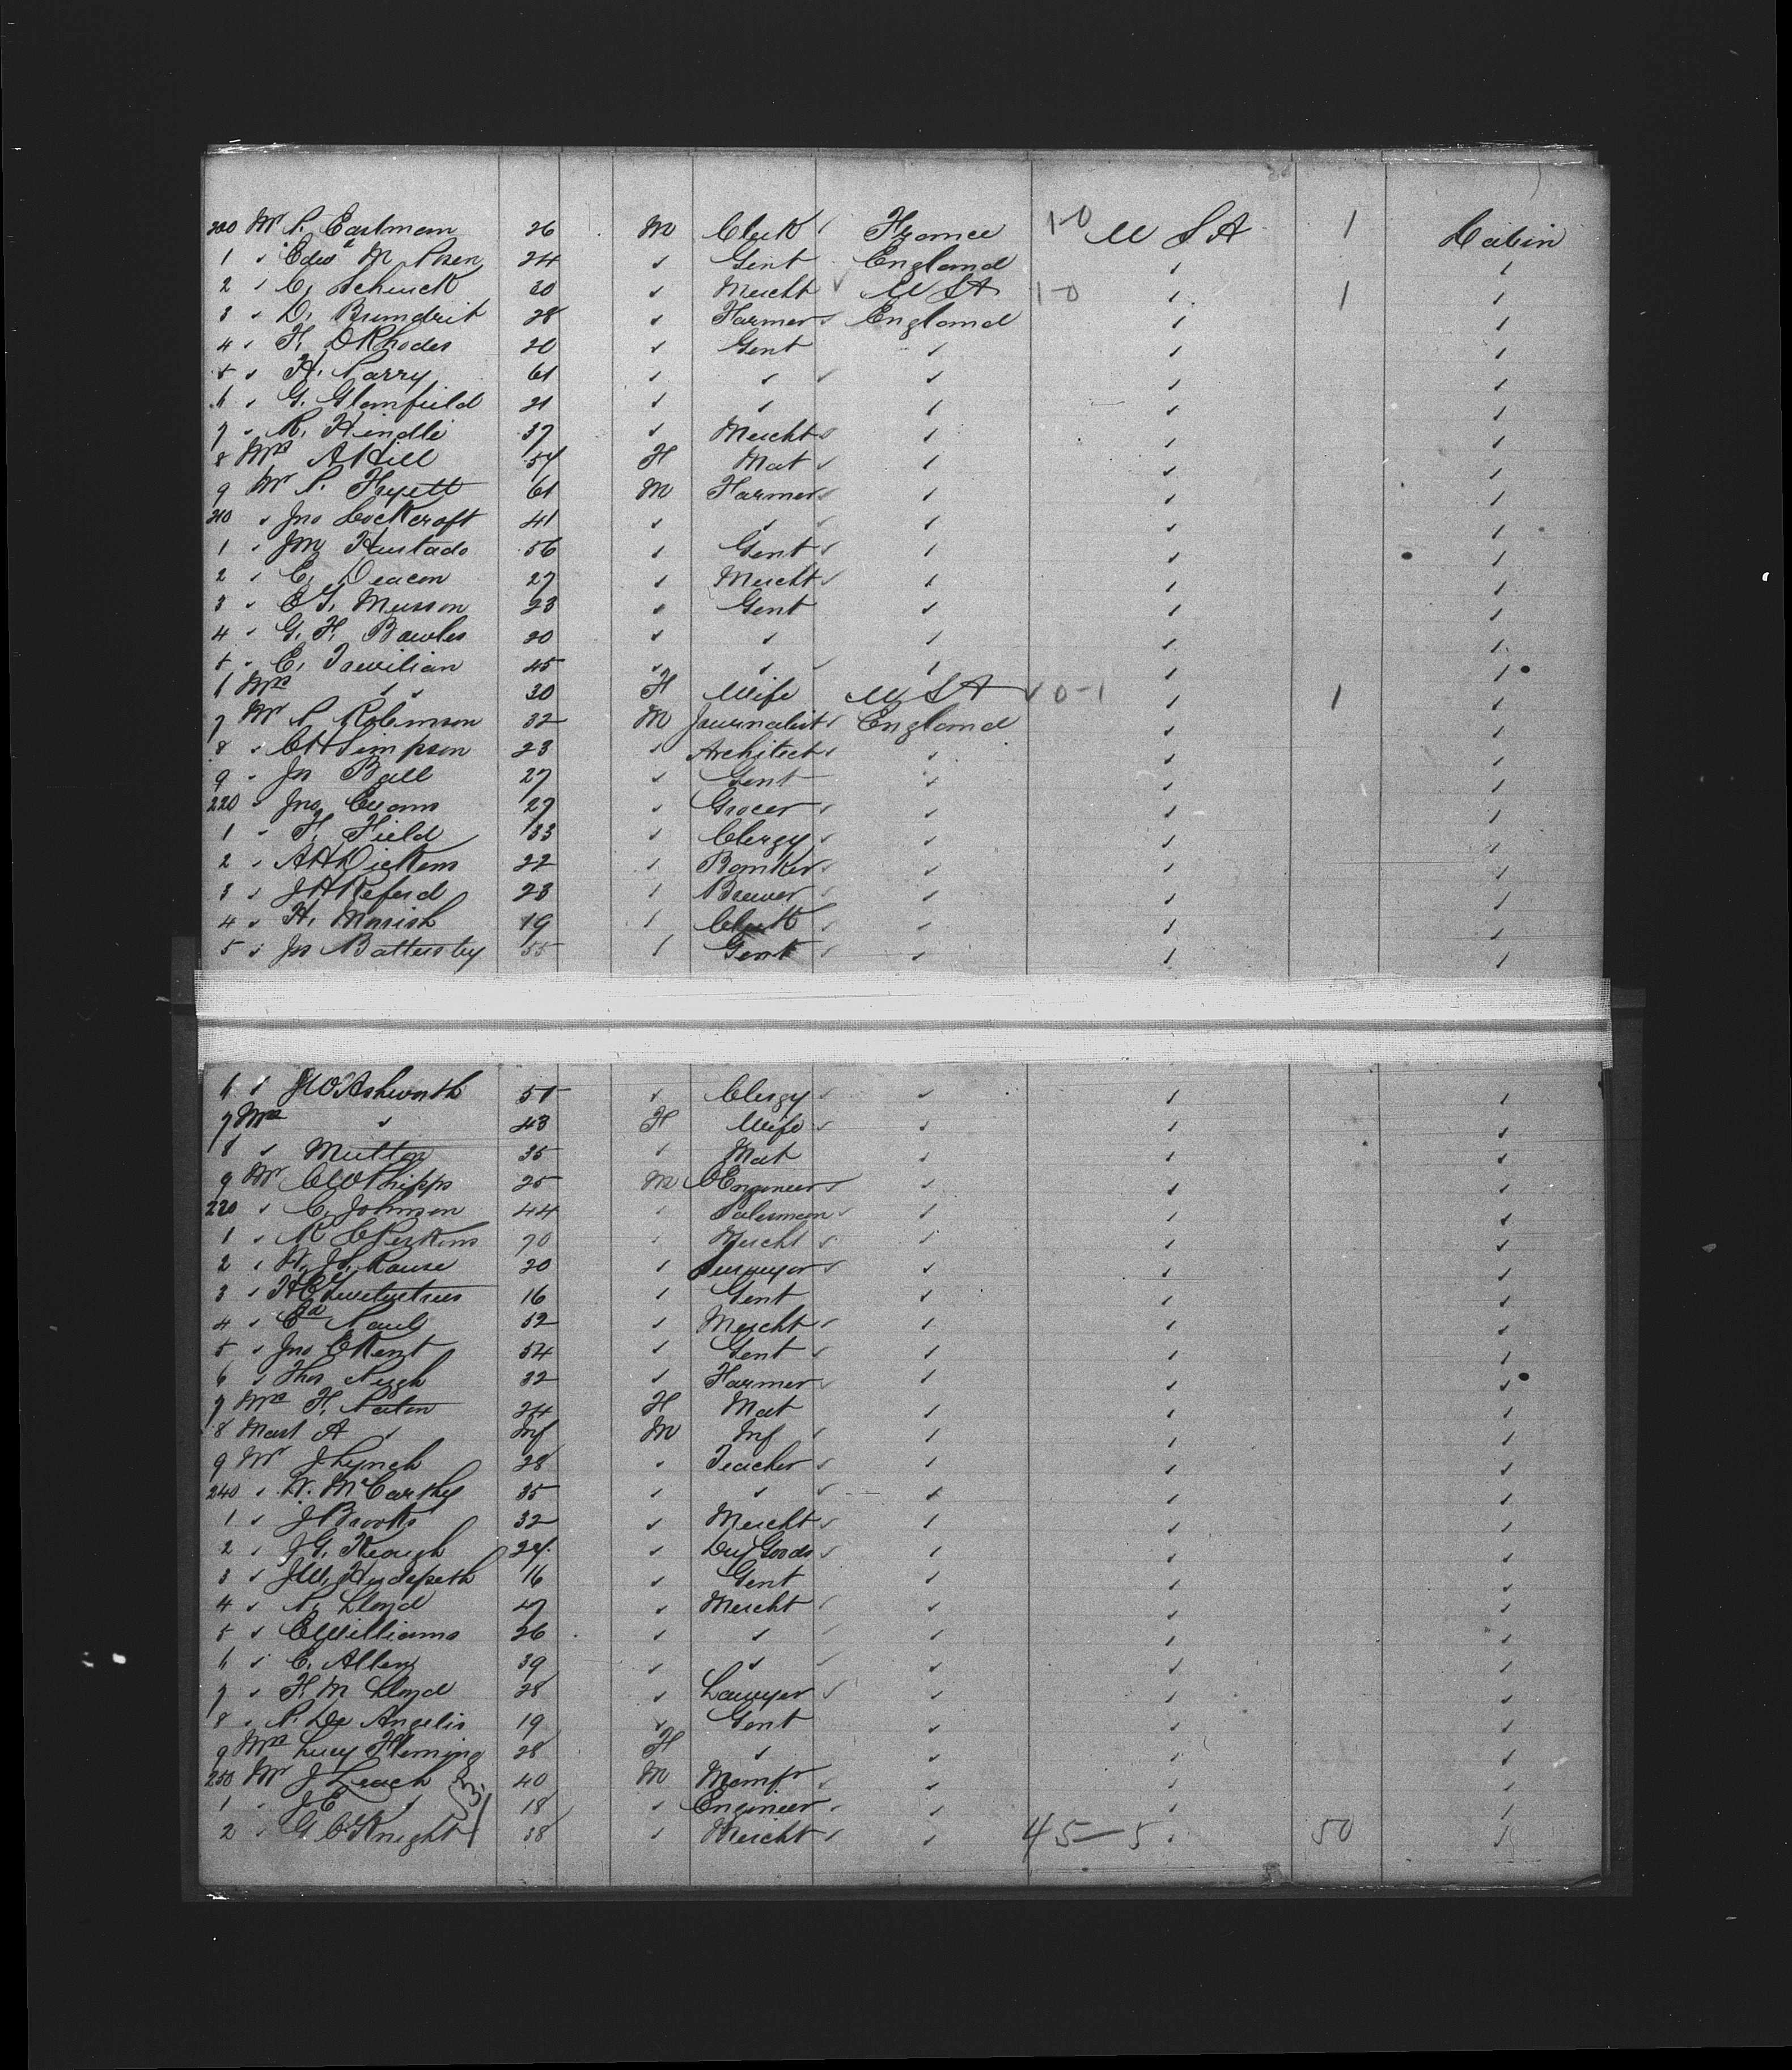 200 Mr P. Eastman 26 M Clerk France 1-0 U S A 1 Cabin
1 " Edwd M 24 " Gent England " "
2 " C. Schuck 30 " Mercht U S A 1-0 " 1 "
3 " D. Brundrit 28 " Farmer England " "
4 " F. D Rhodes 20 " Gent " " "
5 " H. Parry 61 " " " " "
6 " G. Glanfield 21 " " " " "
7 " R. Hindle 37 " Mercht " " "
8 Mrs A Hill 57 F Mat " " "
9 Mr P. Fryett 61 M Farmer " " "
210 " Jno Cockcroft 41 " " " " "
1 " J M Hurtado 56 " Gent " " "
2 " C. Deacon 27 " Mercht " " "
3 " E G. Musson 23 " Gent " " "
4 " G. H. Bowles 20 " " " " "
5 " C. Tavilian 45 " " " " "
6 Mrs " " 30 F Wife U S A 0-1 " 1 "
7 Mr P Robinson 32 M Journalist England " "
8 " C H Simpson 23 " Architect " " "
9 " Js Ball 27 " Gent " " "
220 " Jno Evans 27 " Grocer " " "
1 " F. Field 33 " Clergy " " "
2 " A H Dickens 22 " Banker " " "
3 " J H Reford 23 " Brewer " " "
4 " H. Marish 19 " Clerk " " "
5 " Js Battersby 55 " Gent " " "
6 " J W Ashworth 51 " Clergy " " "
7 Mrs " 43 F Wife " " "
8 " Mutton 35 " Mat " " "
9 Mr C W Phipps 25 M C Engineer " " "
220 " C. Johnson 44 " Salesman " " "
1 " R C Perkins 70 " Mercht " " "
2 " W. J. Rouse 20 " Surveyor " " "
3 " 16 " Gent " " "
4 " Ed Paul 52 " Mercht " " "
5 " Jno C Kent 54 " Gent " " "
6 " Thos Pugh 32 " Farmer " " "
7 Mrs F. Paton 24 F Mat " " "
8 Mast A " Inf M Inf " " "
9 Mr J Lynch 28 " Teacher " " "
240 " W. McCarthy 35 " " " " "
1 " J Brooks 32 " Mercht " " "
2 " J G. Keough 24 " Dry Goods " " "
3 " J W. Hudspeth 16 " Gent " " "
4 " N. Lloyd 47 " Mercht " " "
5 " E Williams 26 " " " " "
6 " C. Allen 39 " " " " "
7 " F M Lloyd 28 " Lawyer " " "
8 " P. De Angelis 19 " Gent " " "
9 Mrs Lucy Fleming 28 F " " " "
250 Mr J Leach 40 M Manfr " " "
1 " J E " 18 " Engineer " " "
2 " G C Knight 38 " Mercht " 45-5 " 50 "